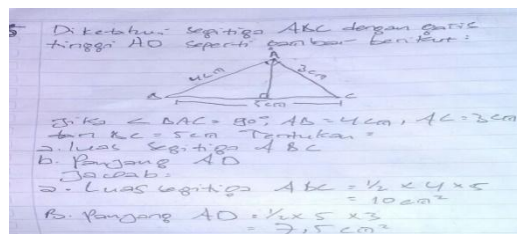 5 Diketahui segitiga ABC dengan garis
tinggi AD seperti gambar berikut:
A
4cm 3cm
B d C
5cm
Jika < BAC = 90°, AB = 4cm, AC = 3cm
dan BC = 5cm Tentukan =
a. luas segitiga ABC
b. Panjang AD
Jawab:
a. Luas segitiga ABC = 1/2 x 4 x 5
= 10 cm²
B. Panjang AD = 1/2 x 5 x 3
= 7,5 cm²